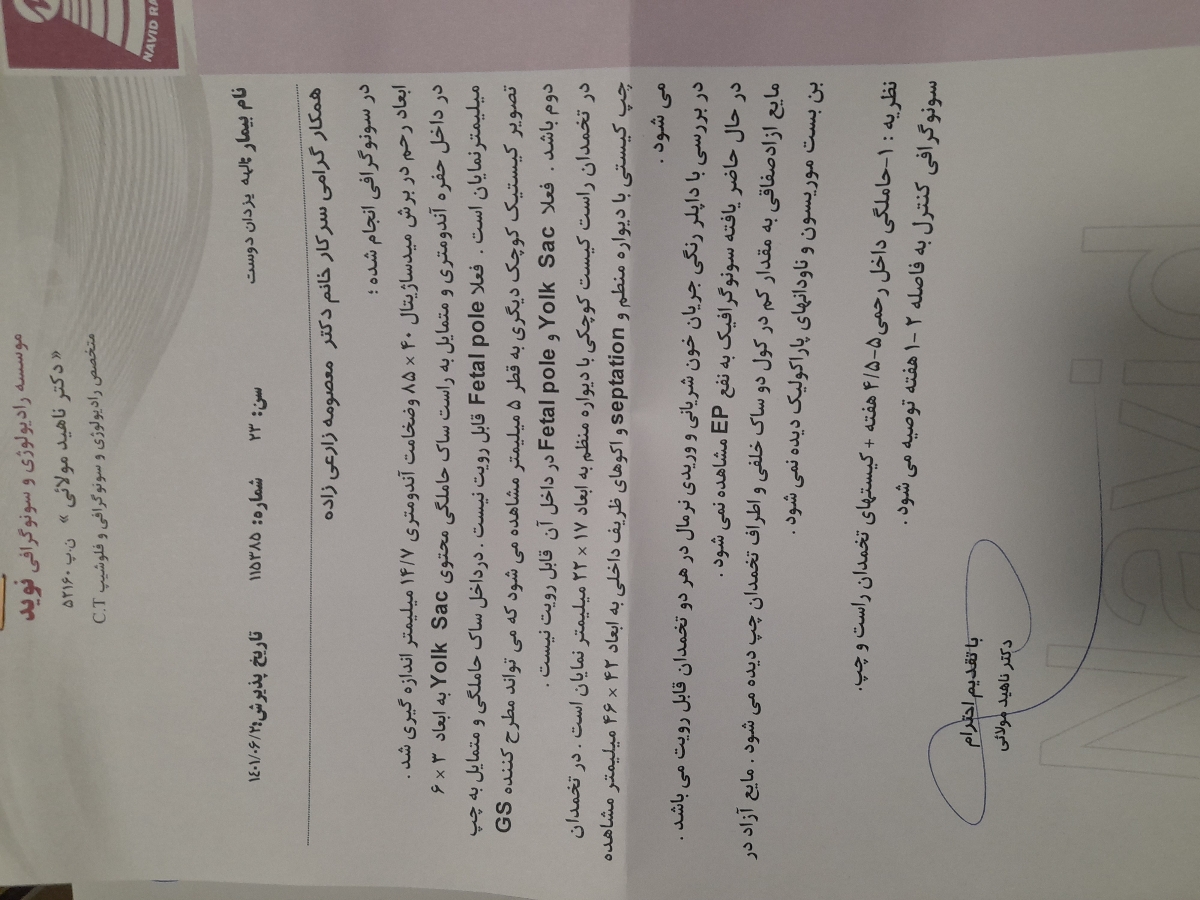 NAVID RA
موسسه رادیولوژی و سونوگرافی نوید
«دکتر ناهید مولائی» ن.پ ۵۲۱۶۰
متخصص رادیولوژی و سونوگرافی و فلوشیپ C.T
نام بیمار: الهه یزدان دوست سن: ۲۳ شماره: ۱۱۵۳۸۵ تاریخ پذیرش: ۱۴۰۱/۰۶/۲
همکار گرامی سرکار خانم دکتر معصومه زارعی زاده
در سونوگرافی انجام شده :
ابعاد رحم در برش میدساژیتال ۴۰ × ۸۵ وضخامت آندومتری ۱۴/۷ میلیمتر اندازه گیری شد .
در داخل حفره آندومتری و متمایل به راست ساک حاملگی محتوی Yolk Sac به ابعاد ۳ × ۶
میلیمترنمایان است . فعلا Fetal pole قابل رویت نیست . درداخل ساک حاملگی و متمایل به چپ
تصویر کیستیک کوچک دیگری به قطر ۵ میلیمتر مشاهده می شود که می تواند مطرح کننده GS
دوم باشد . فعلا Yolk Sac و Fetal pole در داخل آن قابل رویت نیست .
در تخمدان راست کیست کوچکی با دیواره منظم به ابعاد ۱۷ × ۲۲ میلیمتر نمایان است . در تخمدان
چپ کیستی با دیواره منظم و septation و اکوهای ظریف داخلی به ابعاد ۴۲ × ۴۶ میلیمتر مشاهده
می شود .
در بررسی با داپلر رنگی جریان خون شریانی و وریدی نرمال در هر دو تخمدان قابل رویت می باشد .
در حال حاضر یافته سونوگرافیک به نفع EP مشاهده نمی شود .
مایع ازادصفافی به مقدار کم در کول دو ساک خلفی و اطراف تخمدان چپ دیده می شود . مایع آزاد در
بن بست موریسون و ناودانهای پاراکولیک دیده نمی شود .
نظریه : ۱-حاملگی داخل رحمی۵-۴/۵ هفته + کیستهای تخمدان راست و چپ.
سونوگرافی کنترل به فاصله ۲ -۱ هفته توصیه می شود .
با تقدیم احترام
دکتر ناهید مولائی
Navid